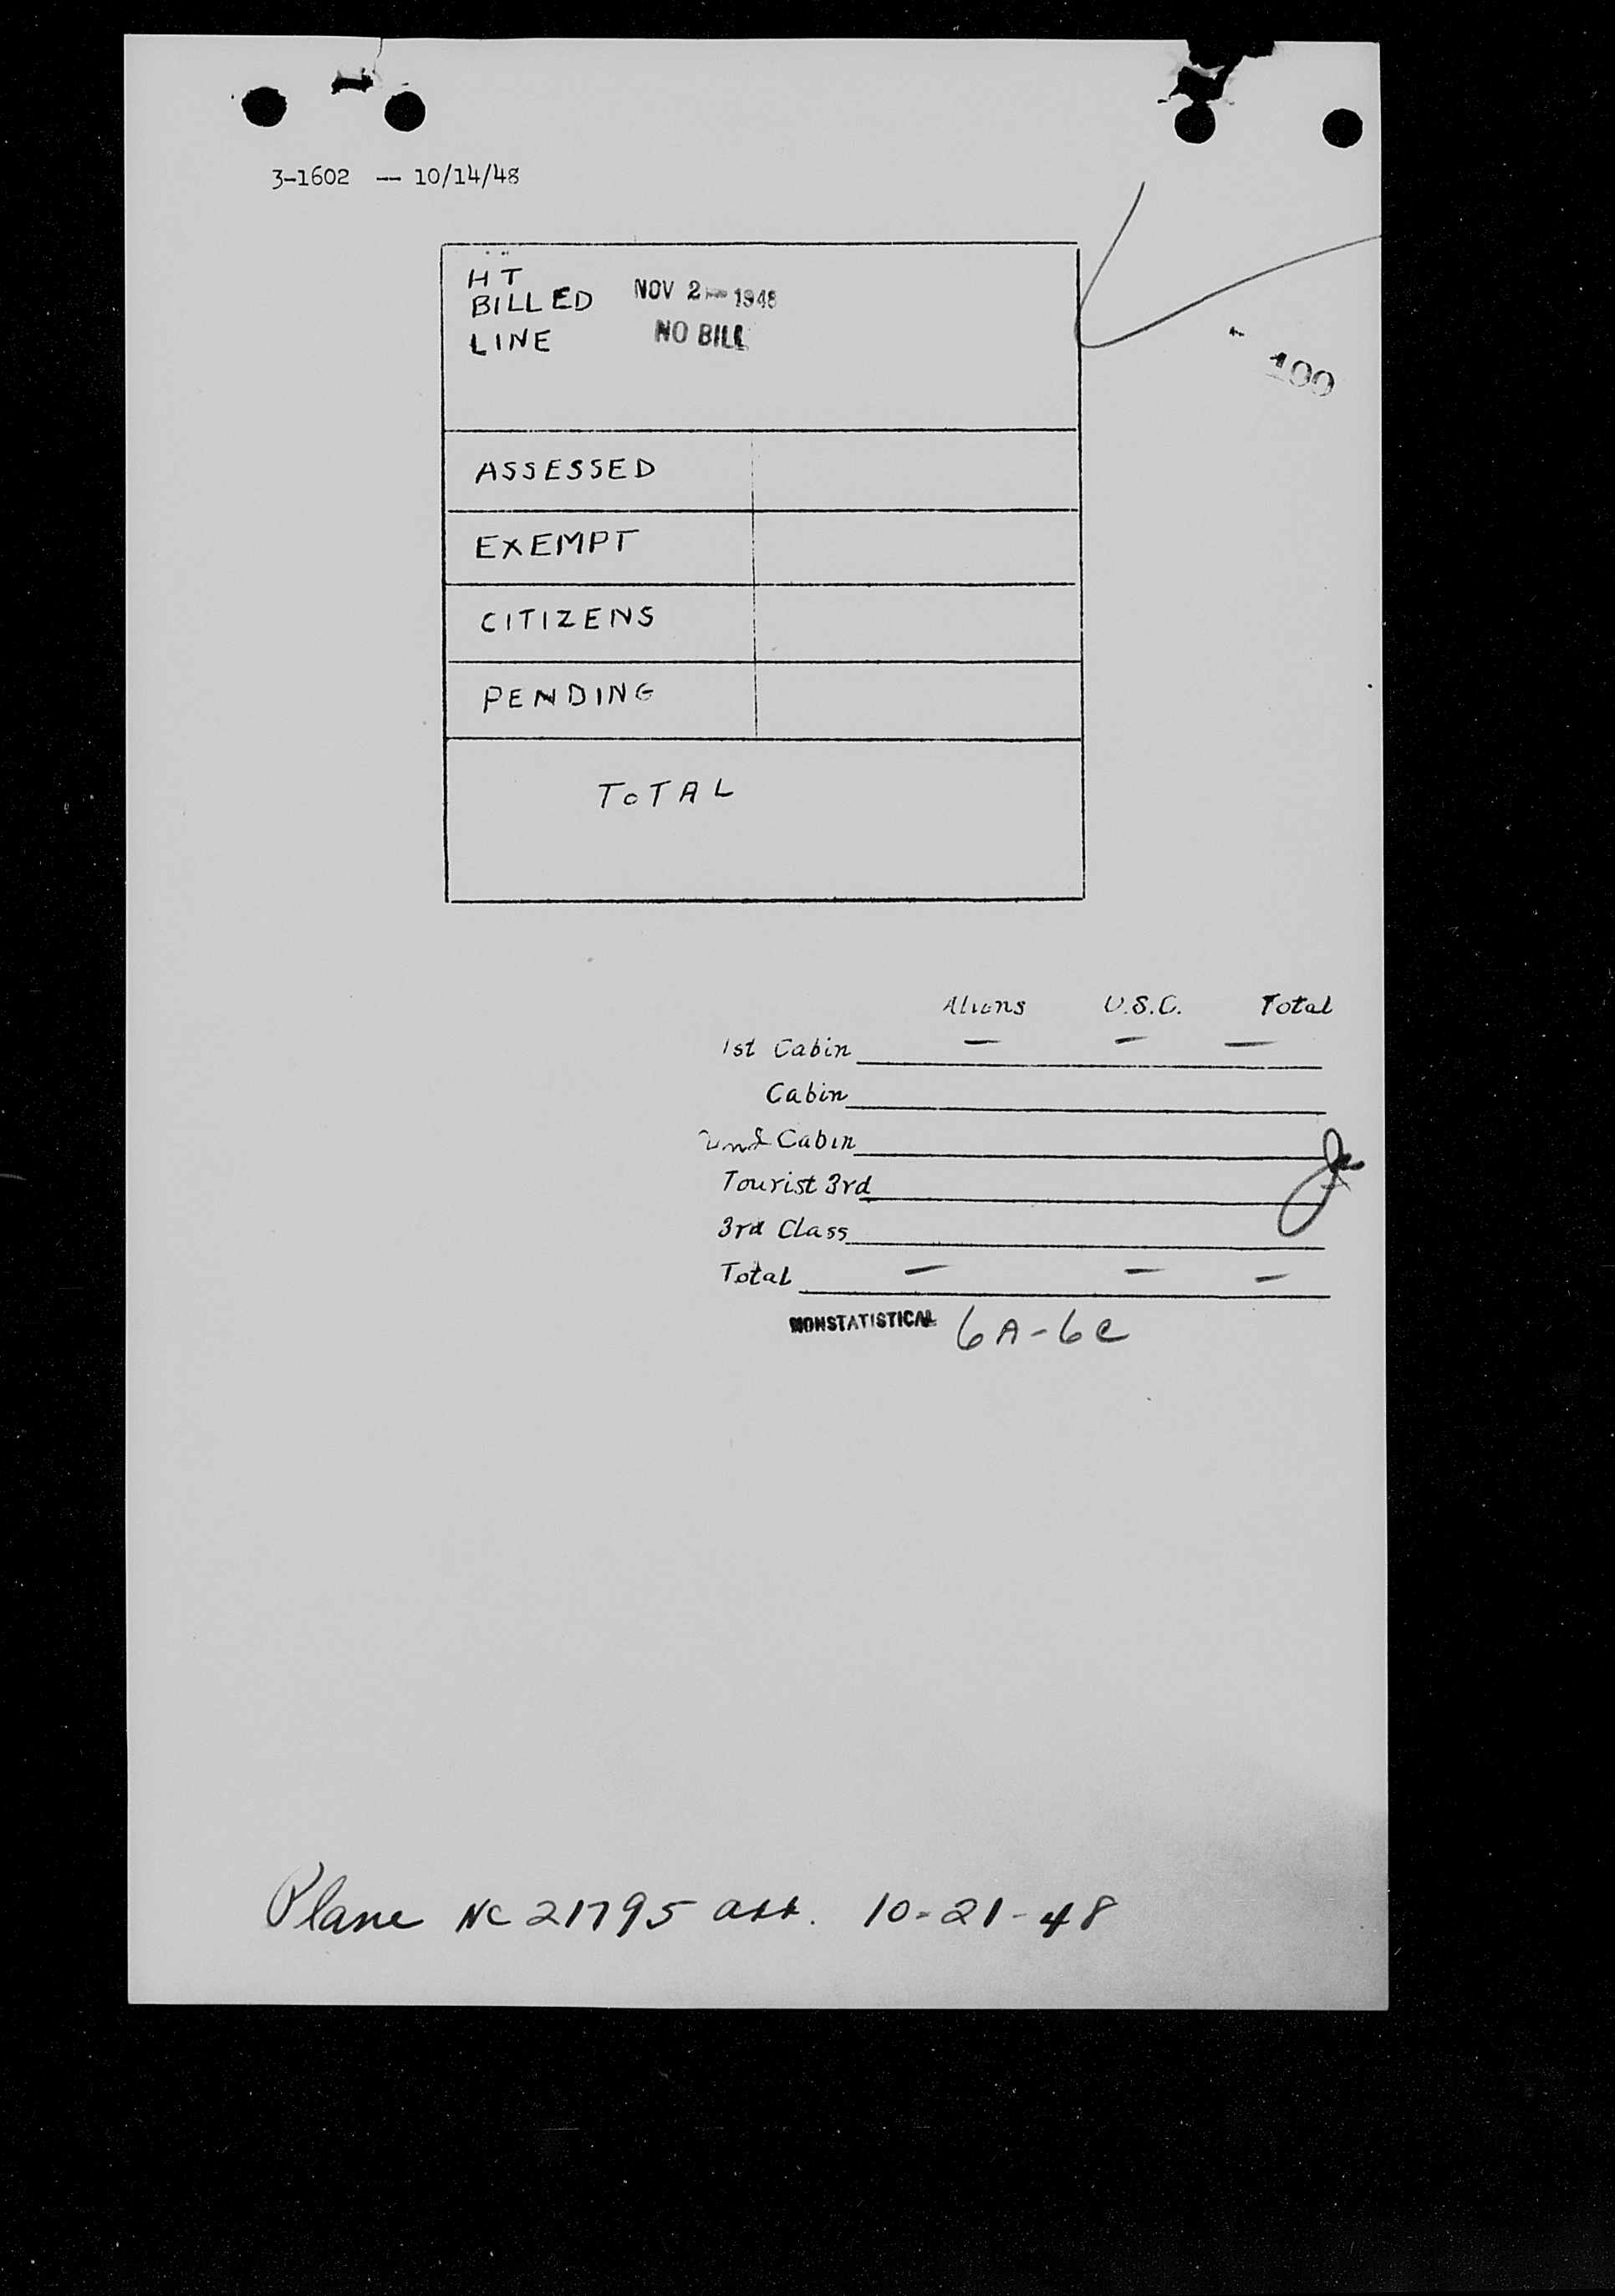 3-1602 -- 10/14/48
HT
BILLED NOV 2 - 1948
LINE NO BILL
100
ASSESSED
EXEMPT
CITIZENS
PENDING
TOTAL
Aliens U.S.C. Total
1st Cabin — — —
Cabin
2nd Cabin
Tourist 3rd
3rd Class
Total — — —
NONSTATISTICAL 6A-6C
Plane NC 21795 arr. 10-21-48